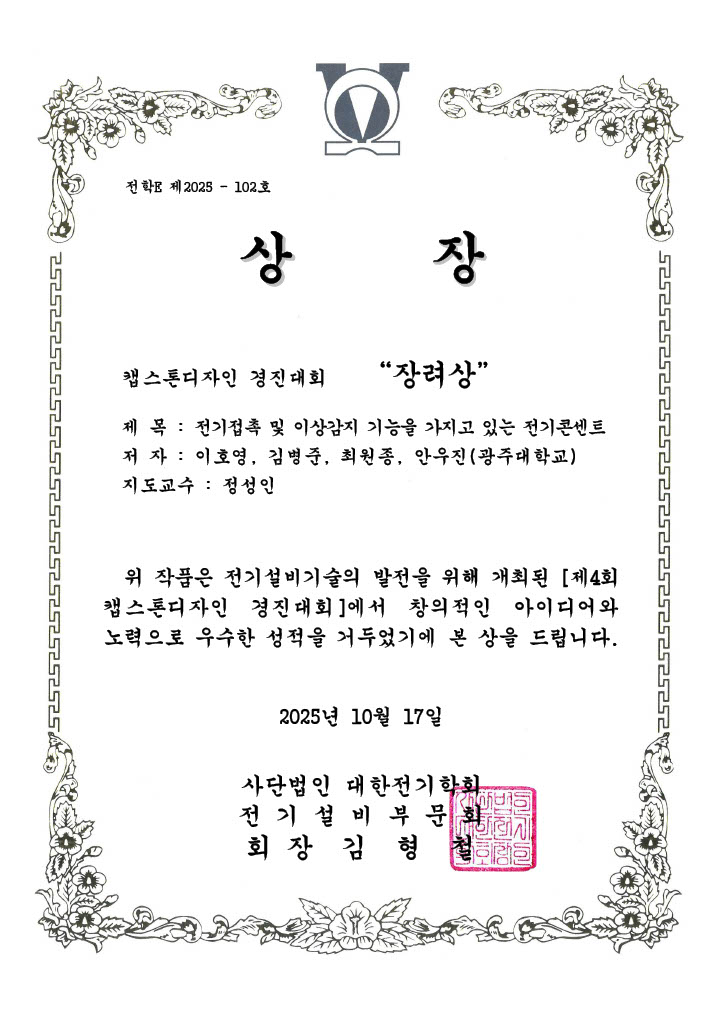 전학E 제2025 - 102호
상 장
캡스톤디자인 경진대회 “장려상”
제 목 : 전기접촉 및 이상감지 기능을 가지고 있는 전기콘센트
저 자 : 이호영, 김병준, 최원종, 안우진(광주대학교)
지도교수 : 정성인
위 작품은 전기설비기술의 발전을 위해 개최된 [제4회
캡스톤디자인 경진대회]에서 창의적인 아이디어와
노력으로 우수한 성적을 거두었기에 본 상을 드립니다.
2025년 10월 17일
사단법인 대한전기학회
전 기 설 비 부 문 회
회 장 김 형 철